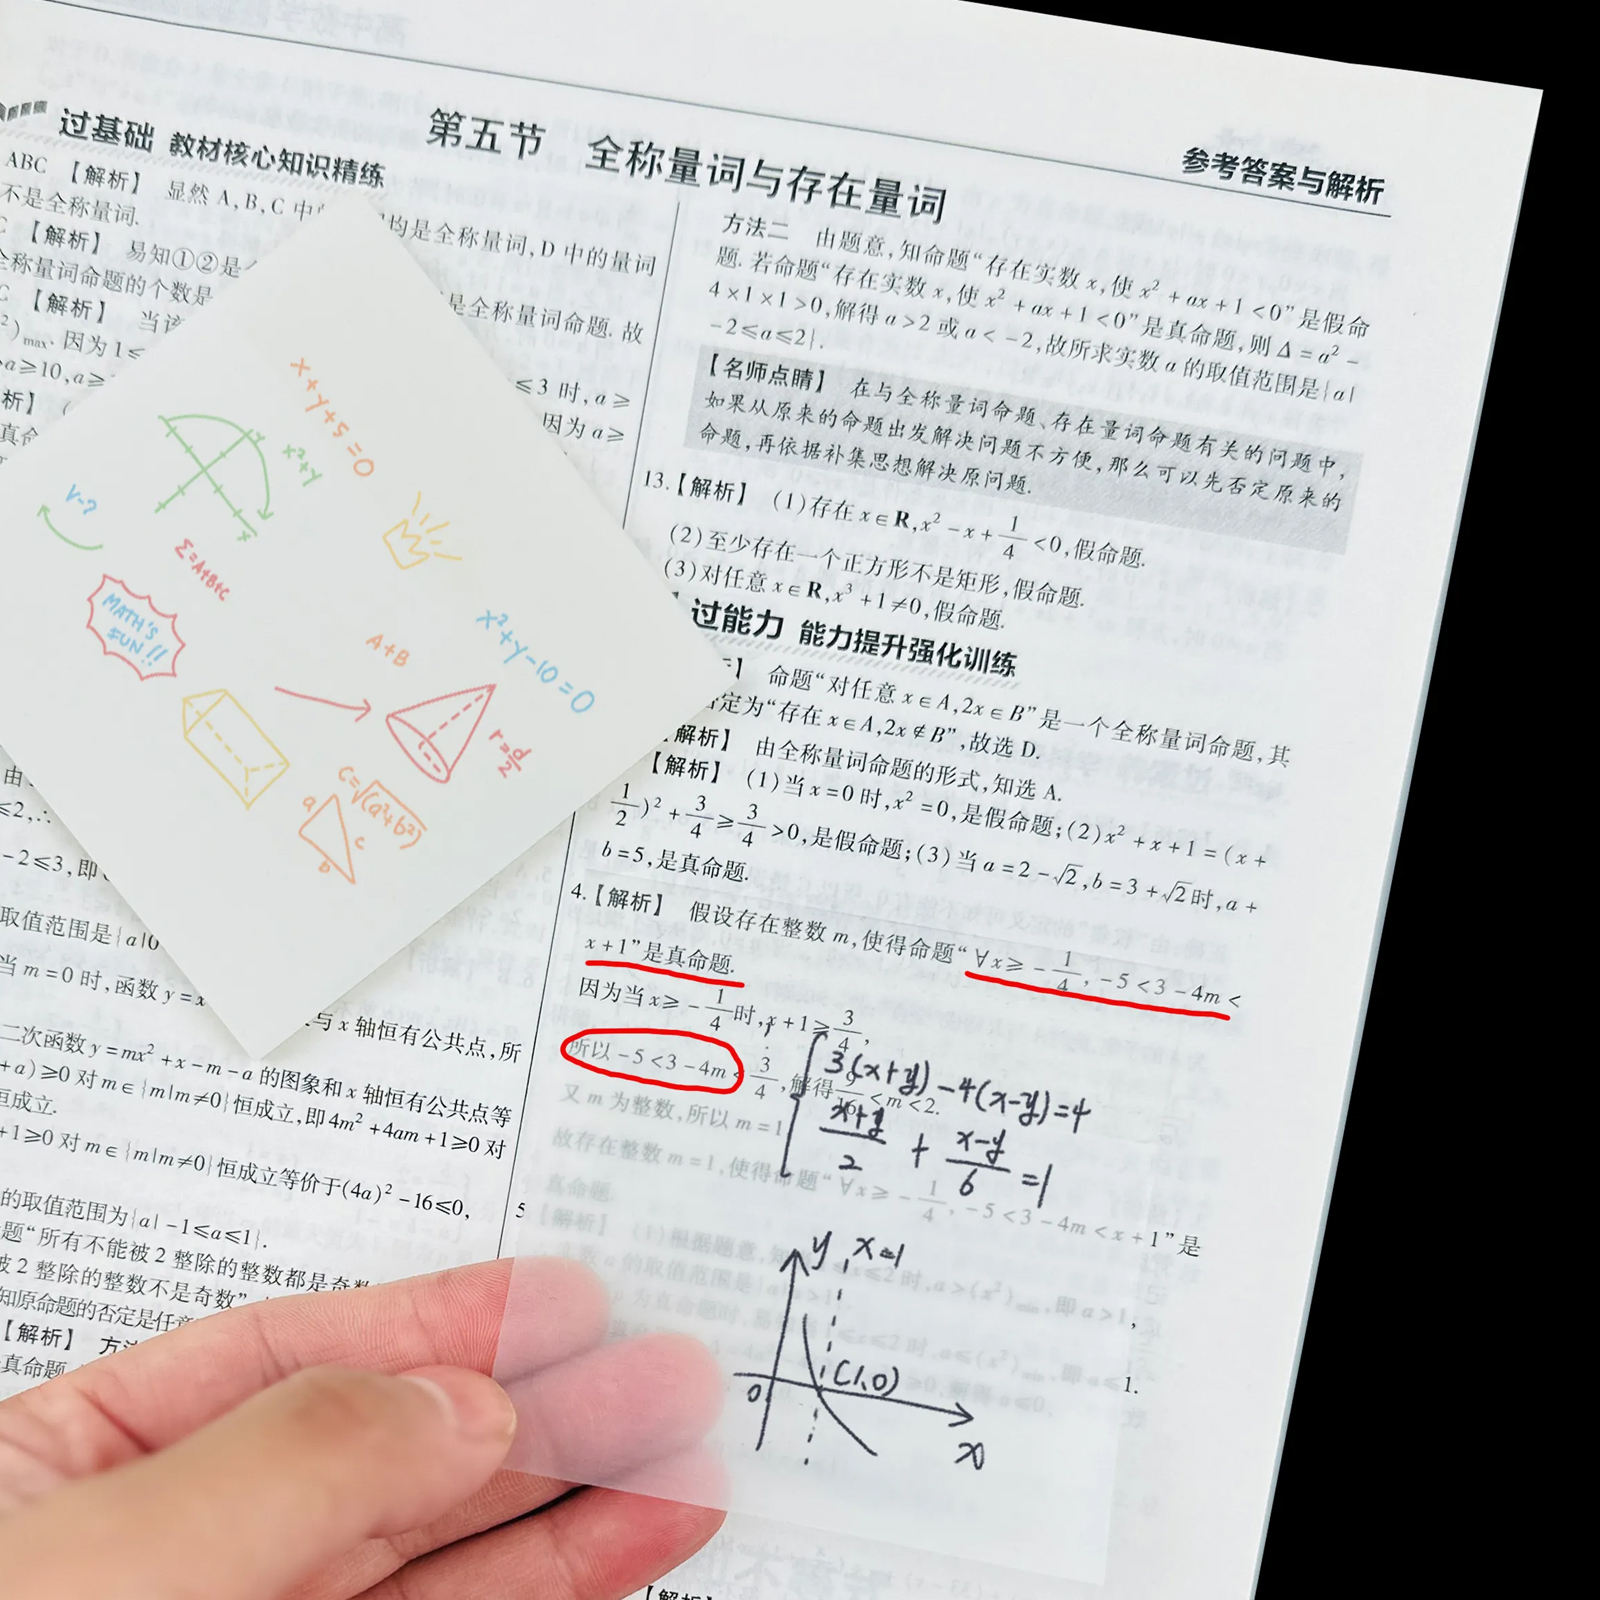 参考答案与解析
第五节 全称量词与存在量词
过基础 教材核心知识精练
ABC 【解析】 显然 A,B,C 中
均是全称量词,D 中的量词
不是全称量词.
【解析】 易知①②是
是全称量词命题. 故
全称量词命题的个数是
【解析】 当
max. 因为 1≤
≤3 时,a≥
a≥10,a≥
因为 a≥
x+y+5=0
x²+y
V=?
Σ=A+B+C
MATH'S
FUN!!
A+B
x²+y-10=0
r=d/2
C=√(a²+b²)
a
c
b
≤2,∴
-2≤3,即
取值范围是{a|0
当 m=0 时,函数 y=x
与 x 轴恒有公共点,所
二次函数 y=mx²+x-m-a 的图象和 x 轴恒有公共点等
+a)≥0 对 m∈{m|m≠0}恒成立,即 4m²+4am+1≥0 对
恒成立.
+1≥0 对 m∈{m|m≠0}恒成立等价于(4a)²-16≤0,
的取值范围为{a|-1≤a≤1}.
题“所有不能被 2 整除的整数都是奇数
被 2 整除的整数不是奇数”
知原命题的否定是任意
【解析】 方法
真命题
方法二 由题意,知命题“存在实数 x,使 x²+ax+1<0”是假命
题. 若命题“存在实数 x,使 x²+ax+1<0”是真命题,则 Δ=a²-
4×1×1>0,解得 a>2 或 a<-2,故所求实数 a 的取值范围是{a|
-2≤a≤2}.
【名师点睛】 在与全称量词命题、存在量词命题有关的问题中,
如果从原来的命题出发解决问题不方便,那么可以先否定原来的
命题,再依据补集思想解决原问题.
13.【解析】 (1)存在 x∈R,x²-x+1/4<0,假命题.
(2)至少存在一个正方形不是矩形,假命题.
(3)对任意 x∈R,x³+1≠0,假命题.
过能力 能力提升强化训练
命题“对任意 x∈A,2x∈B”是一个全称量词命题,其
否定为“存在 x∈A,2x∉B”,故选 D.
【解析】 由全称量词命题的形式,知选 A.
【解析】 (1)当 x=0 时,x²=0,是假命题;(2)x²+x+1=(x+
1/2)²+3/4≥3/4>0,是假命题;(3)当 a=2-√2,b=3+√2时,a+
b=5,是真命题.
4.【解析】 假设存在整数 m,使得命题“∀x≥-1/4,-5<3-4m<
x+1”是真命题.
因为当 x≥-1/4时,x+1≥3/4,
所以-5<3-4m<3/4,解得9/16<m<2.
又 m 为整数,所以 m=1
故存在整数 m=1,使得命题“∀x≥-1/4,-5<3-4m<x+1”是
真命题.
5
【解析】 (1)根据题意,知
≤x≤2 时,a>(x²)min,即 a>1,
的取值范围是
为真命题时,
≤x≤2 时,a≤(x²)min,即 a≤1.
3(x+y)-4(x-y)=4
(x+y)/2+(x-y)/6=1
y x=1
(1,0)
0
x
【解析】